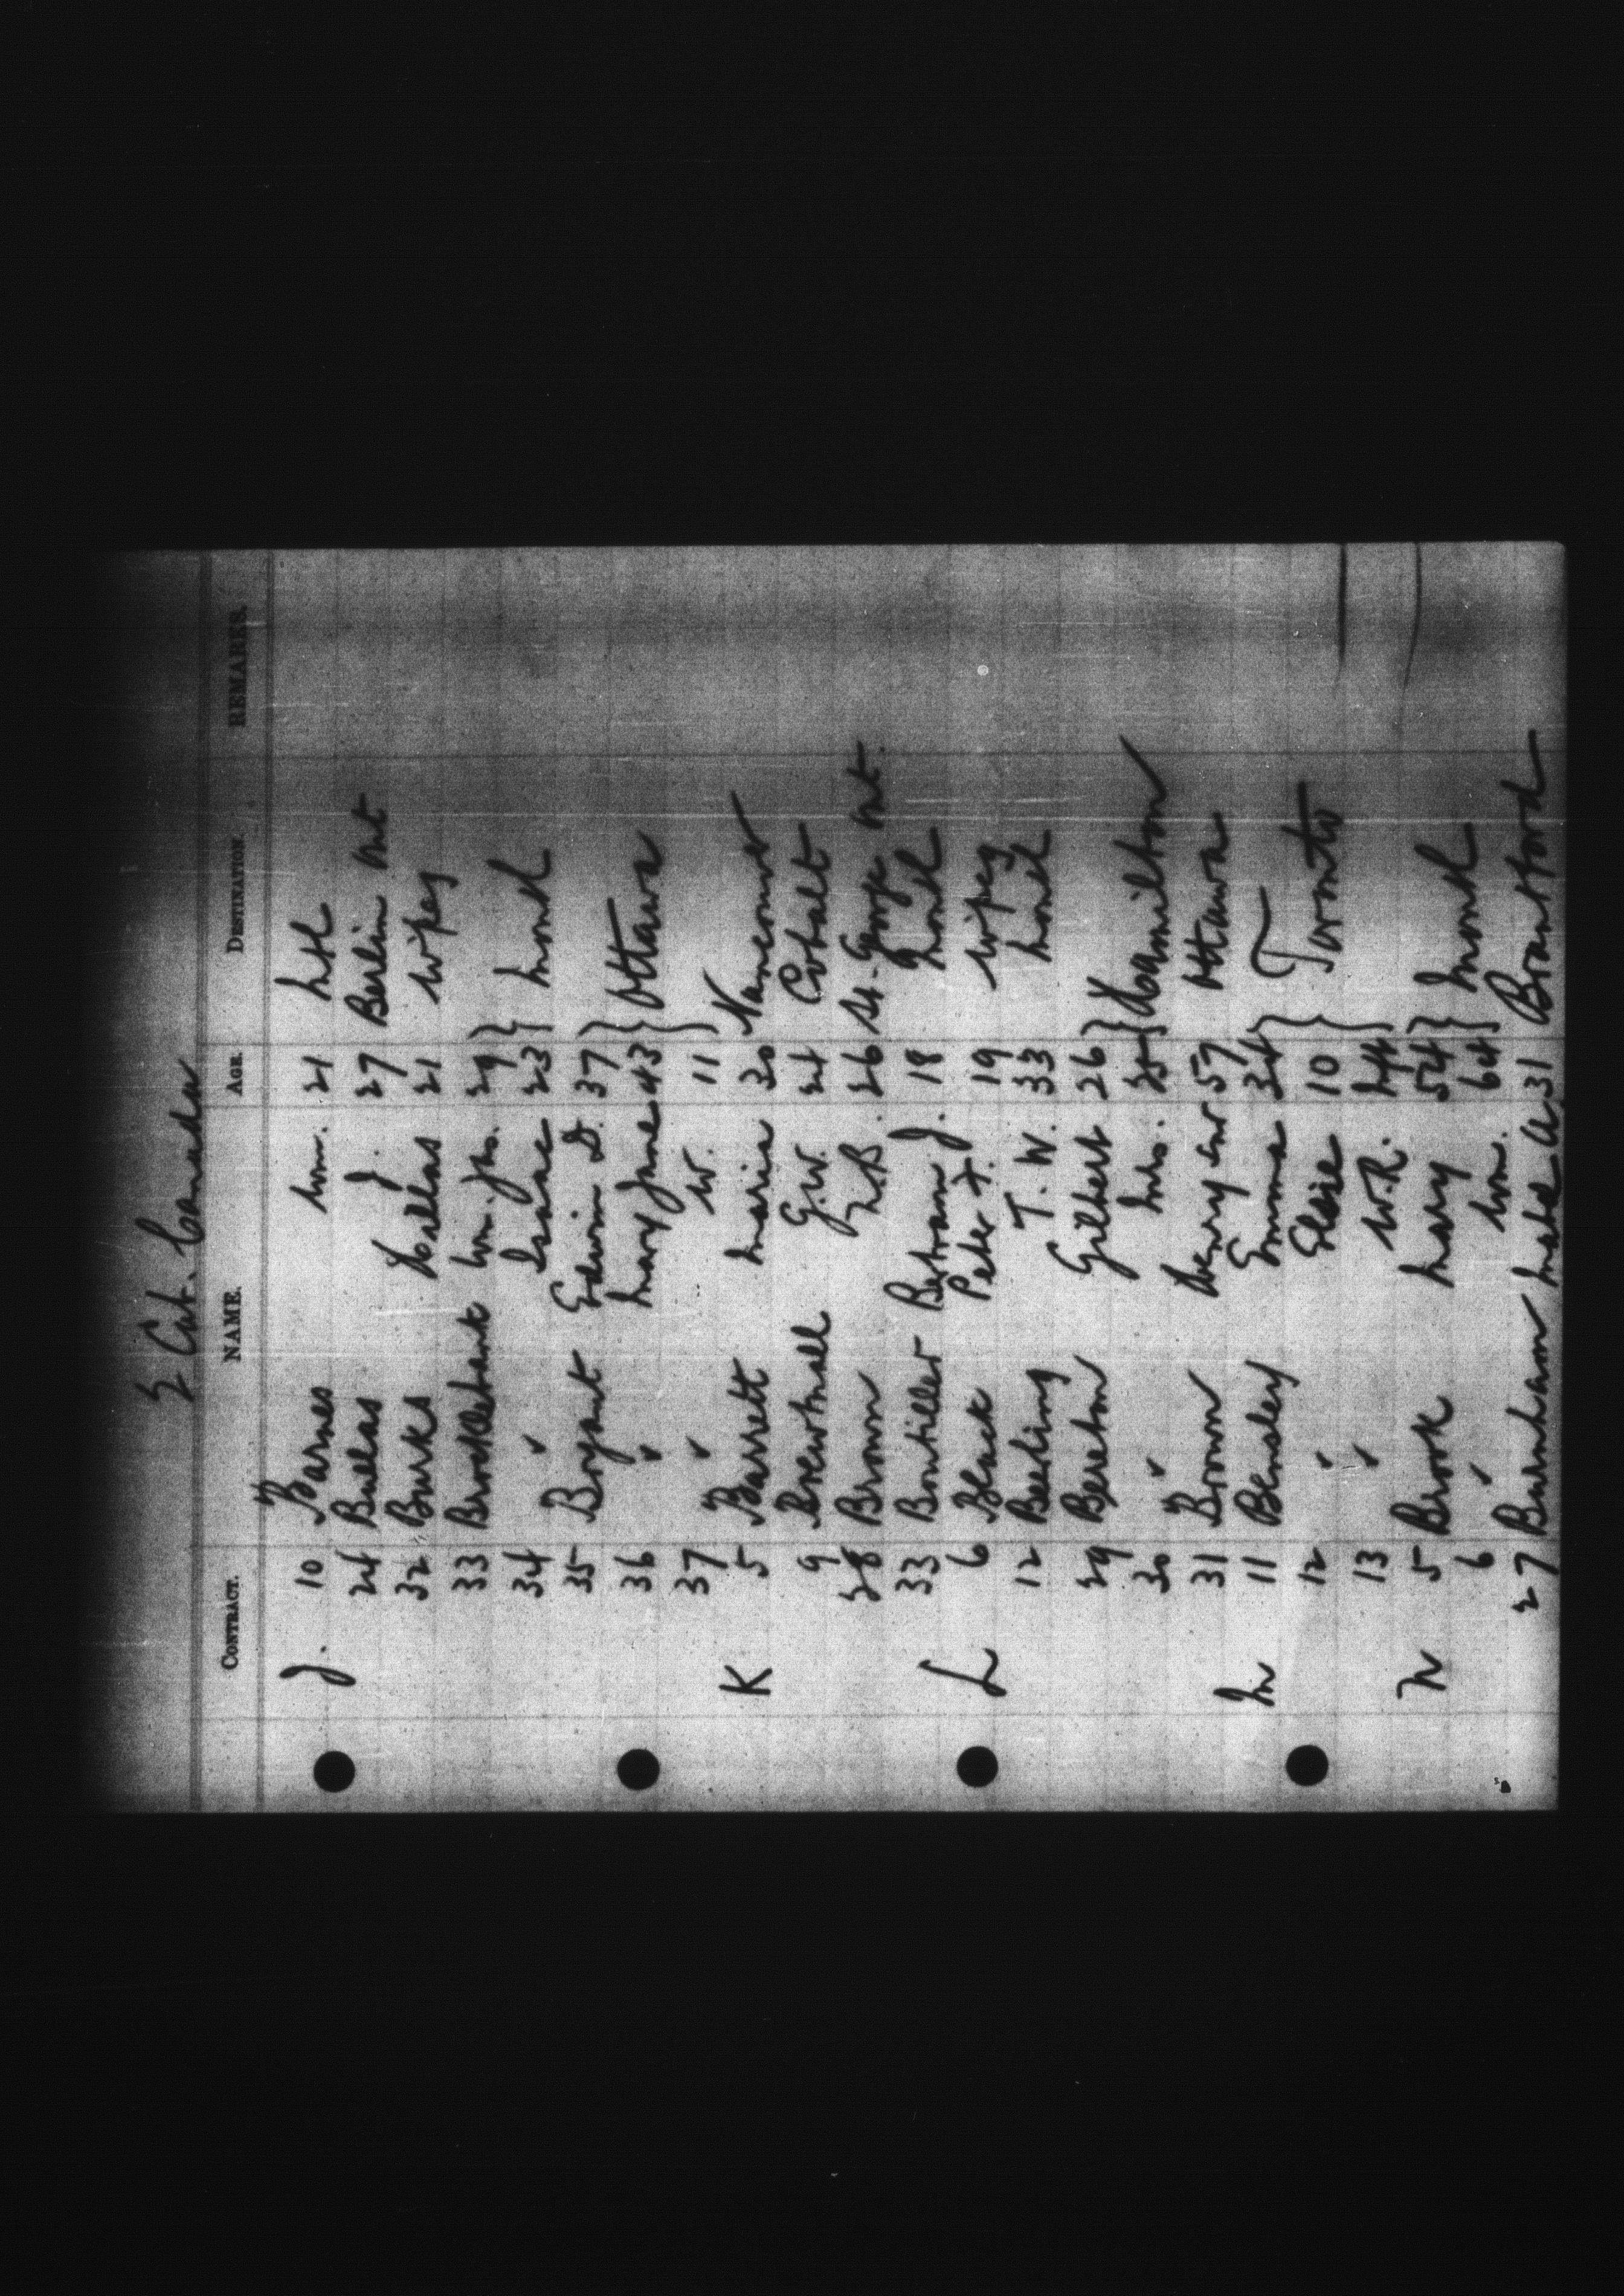 2 Cat. Canada
CONTRACT. NAME. AGE. DESTINATION. REMARKS.
J. 10 Barnes Wm. 21 Mtl
24 Bullas J. 27 Berlin Ont
32 Burks Hallas 21 Wpeg
33 Brocklebank Wm. Jas. 29 }
34 ✓ Isaac 23 } Montl
35 Bryant Edwin D. 37 }
36 ✓ Mary Jane 43 } Ottawa
37 ✓ W. 11 }
K 5 Barrett Maria 30 Vancouver
9 Brewtnall G.W. 24 Cobalt
28 Brown 26 St. George Ont.
33 Boutiller Bertram J. 18 Montl
L 6 Black Peter F. 19 Wpeg
12 Beeling T. W. 33 Montl
29 Bereton Gilbert 26 }
30 ✓ Mrs. 25 } Hamilton
31 Brown Henry Snr 57 Ottawa
M 11 Blensley Emma 34 }
12 ✓ Elsie 10 } Toronto
13 ✓ W.R. 44 }
N 5 Brook Mary 54 }
6 ✓ Wm. 64 } Montl
27 Burnham Mabel A. 31 Brantford